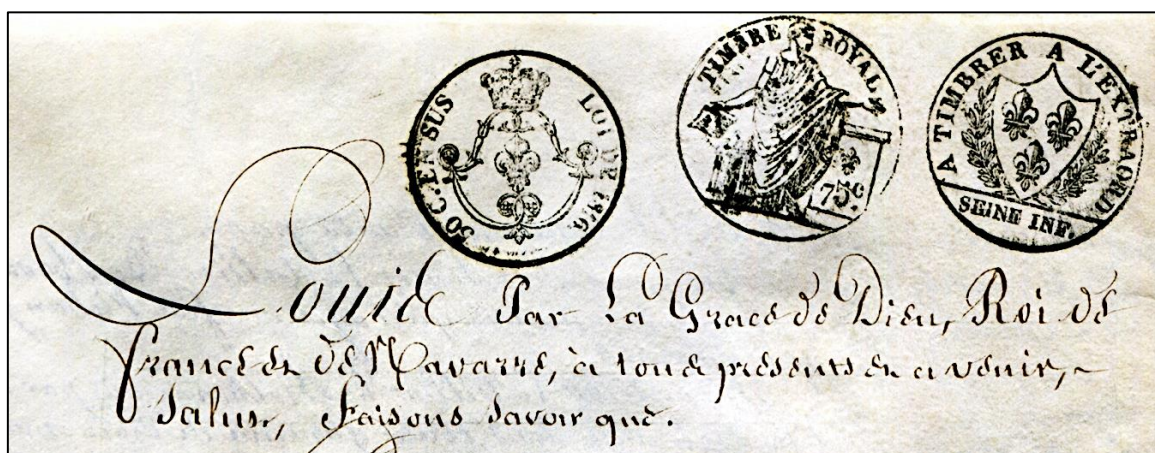 50 C. EN SUS LOI DE 1816
TIMBRE ROYAL
75c
A TIMBRER A L'EXTRAORD.
SEINE INF.
Louis Par La Grace de Dieu, Roi de
france et de Navarre, à tous présents et a venir,
Salut, faisons savoir que.